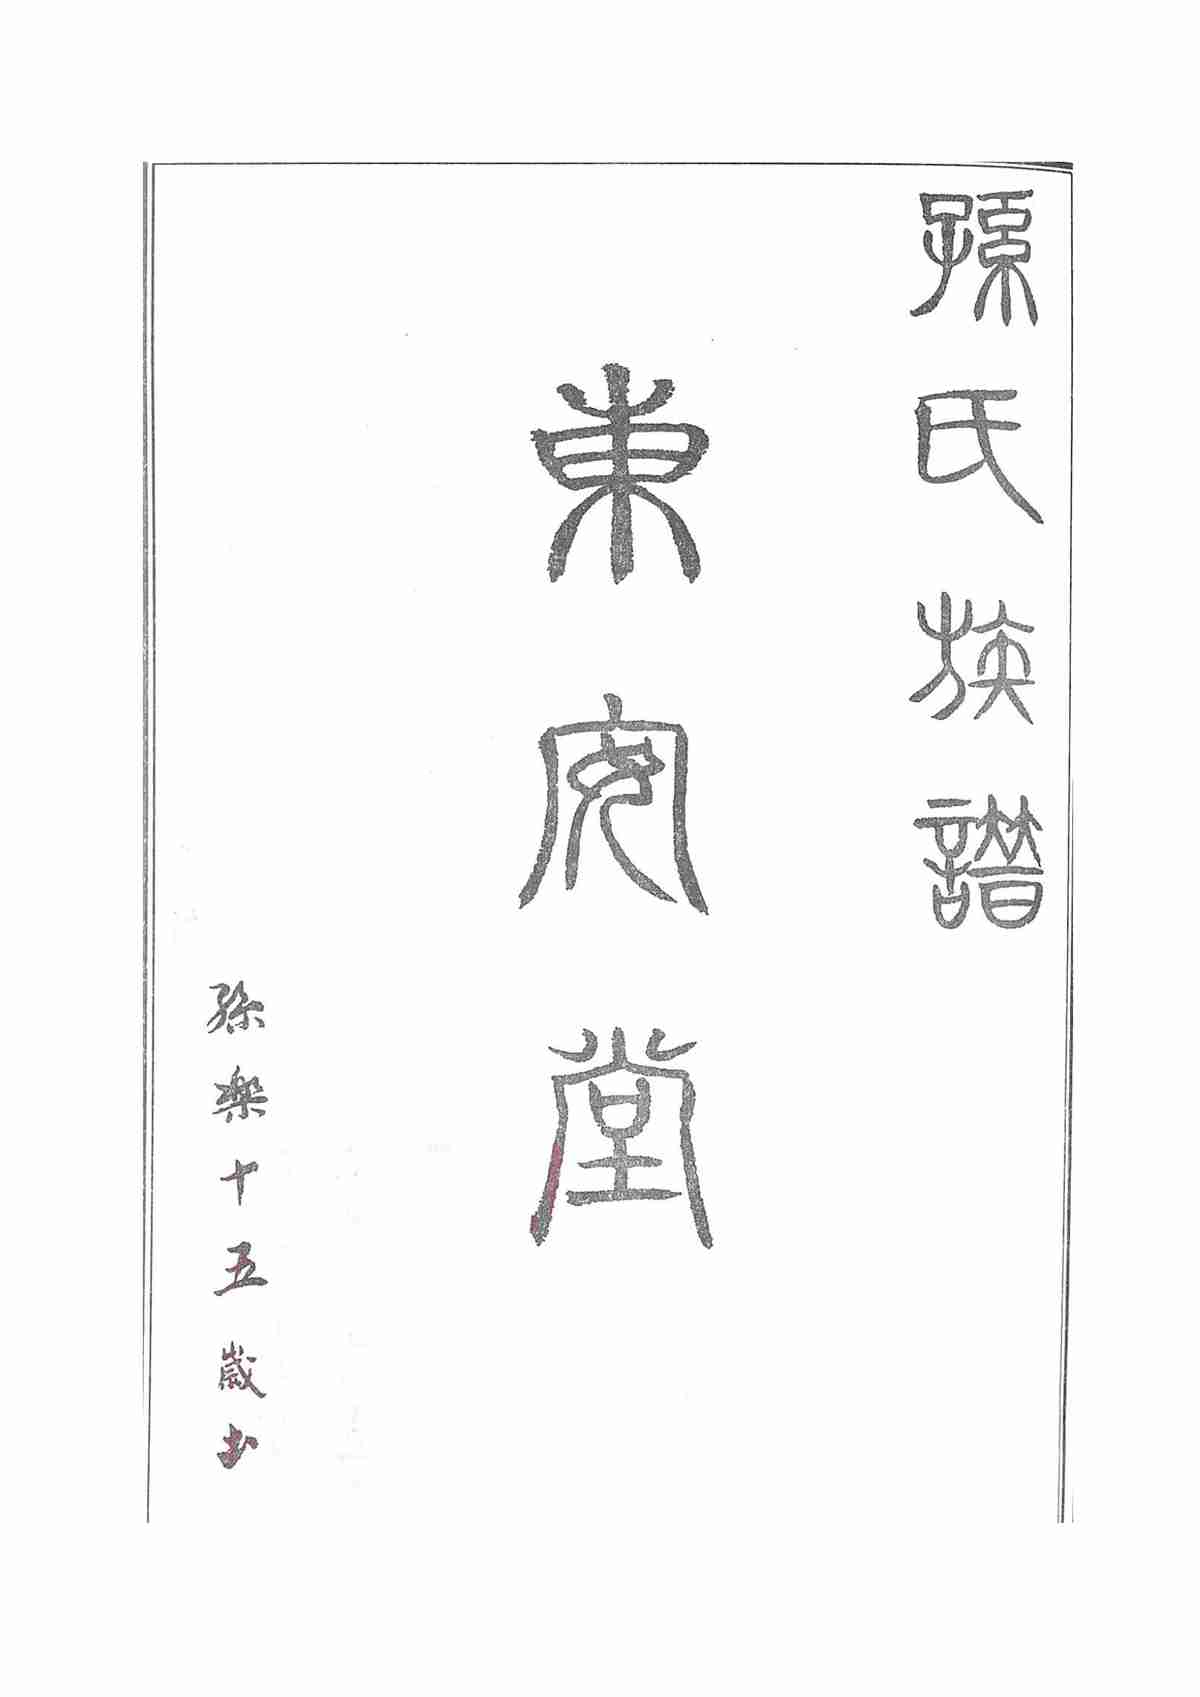 孫氏族譜
東安堂
孫樂十五歲书